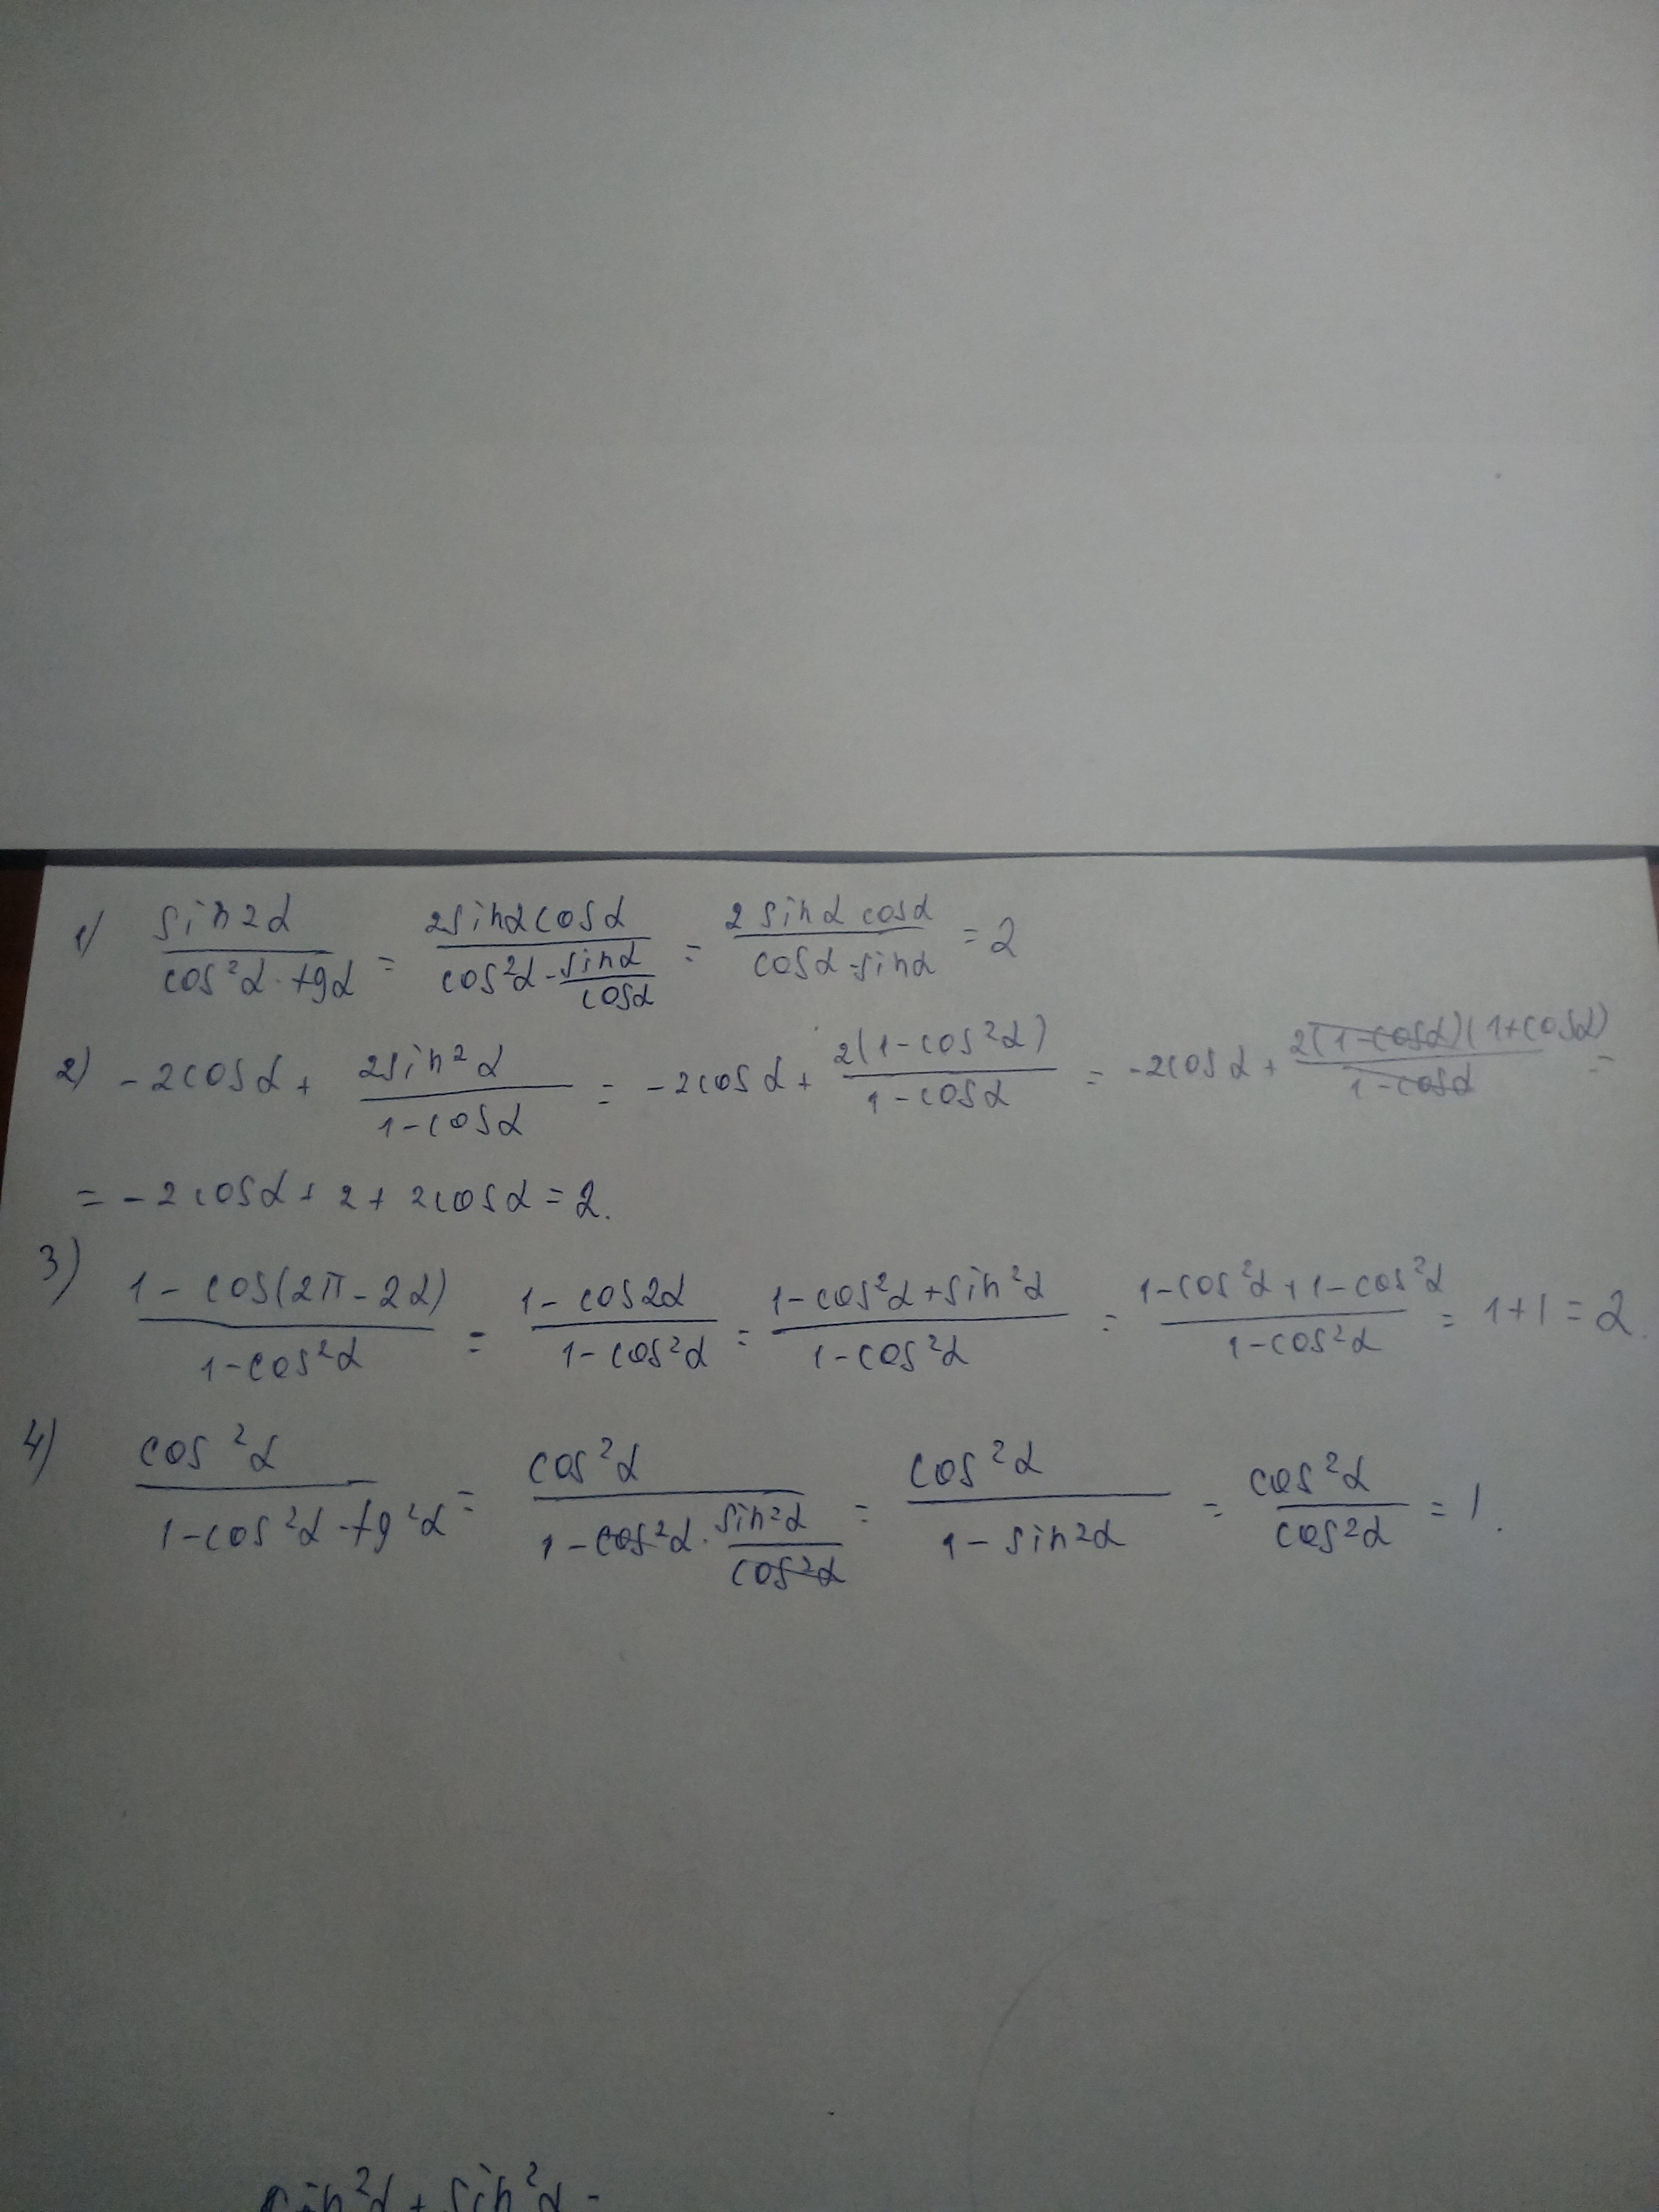 1) sin2α / cos²α · tgα = 2sinα cosα / cos²α · sinα/cosα = 2 sinα cosα / cosα · sinα = 2
2) -2cosα + 2sin²α / 1-cosα = -2cosα + 2(1-cos²α) / 1-cosα = -2cosα + 2(1-cosα)(1+cosα) / 1-cosα =
= -2cosα + 2 + 2cosα = 2.
3) 1 - cos(2π - 2α) / 1-cos²α = 1- cos2α / 1-cos²α = 1-cos²α + sin²α / 1-cos²α = 1-cos²α + 1-cos²α / 1-cos²α = 1+1 = 2.
4) cos²α / 1-cos²α · tg²α = cos²α / 1-cos²α · sin²α/cos²α = cos²α / 1 - sin²α = cos²α / cos²α = 1.
sin²α + sin²α =